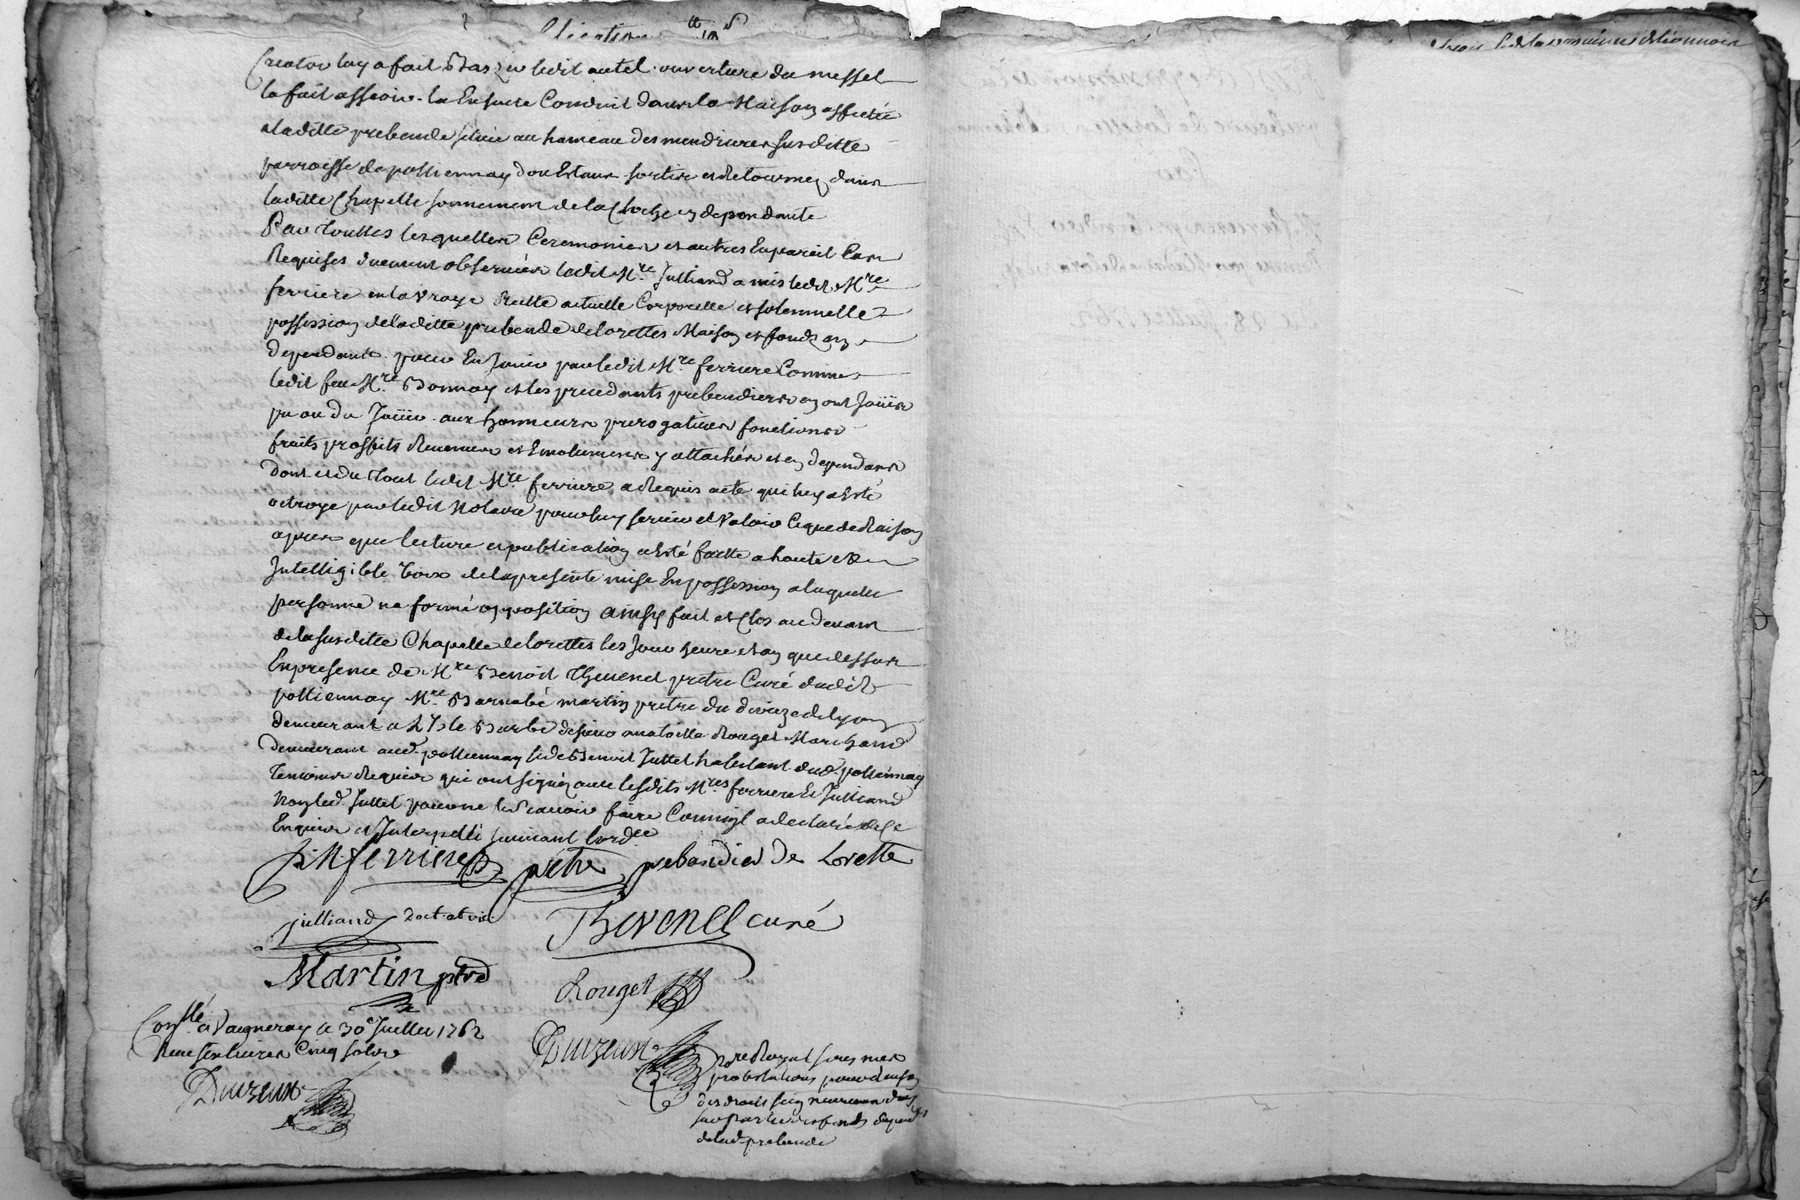 Creator luy a fait Baszer ledit autel ouverture du messel
la fait asseoir. la Ensuite Conduit dans la Maison affectée
a laditte prebende scituée au hameau des mendrieres susditte
parroisse de pollionnay dou Estant sortis et Retournez dans
laditte Chapelle sonnement de la Cloche en dependante
Par touttes lesquelles Ceremonies et autres En pareil Cas
Requises duement observées ledit Mre Julliand a mis ledit Mre
ferriere en la vraye Reelle actuelle Corporelle et solemnelle
possession de laditte prebende de lorettes Maison et fonds en
dependants. pour En Jouir par ledit Mre ferriere Comme
ledit feu Mre Bonnay et les precedants prebendiers en ont Joüis
pu ou du Joüir. aux honneurs prerogatives fonctions
fruits proffits Revenus et Emoluments y attachés et en dependans
Dont et du tout ledit Mre ferriere a Requis acte qui luy a Eté
octroyé par ledit Notaire pour luy servir et valoir Ce que de Raison
apres que lecture et publication a Eté faitte a haute et
Intelligible voix de la presente mise En possession a laquelle
personne na formé opposition ainsy fait et Clos au devant
de la susditte Chapelle de lorettes les Jour heure et an que dessus
En presence de Mre Benoit Thevenet pretre Curé dudit
pollionnay Mre Barnabé martin pretre du diocize de lyon
demeurant a L'Isle Barbe de sieur Rouget Marchand
demeurant aud. pollionnay & de Benoit Juttet habitant dud. pollionnay
temoins Requis qui ont signé avec lesdits Mres ferriere Et Julliand
Non led. Juttet pour ne le scavoir faire Comme il a declaré de ce
Enquis et Interpellé suivant lordce
ferriere pretre prebandier de Lorette
julliand
Thevenet curé
Martin ptre
Rouget
Conslé a Vaugneray le 30e Juillet 1762
Reçu six livres Cinq sols
Duvzeux
Duvzeux
Nore Royal sous mes
protestations pour
des droits seigneuriaux dus
sur partie des fonds depend
de lad. prebende